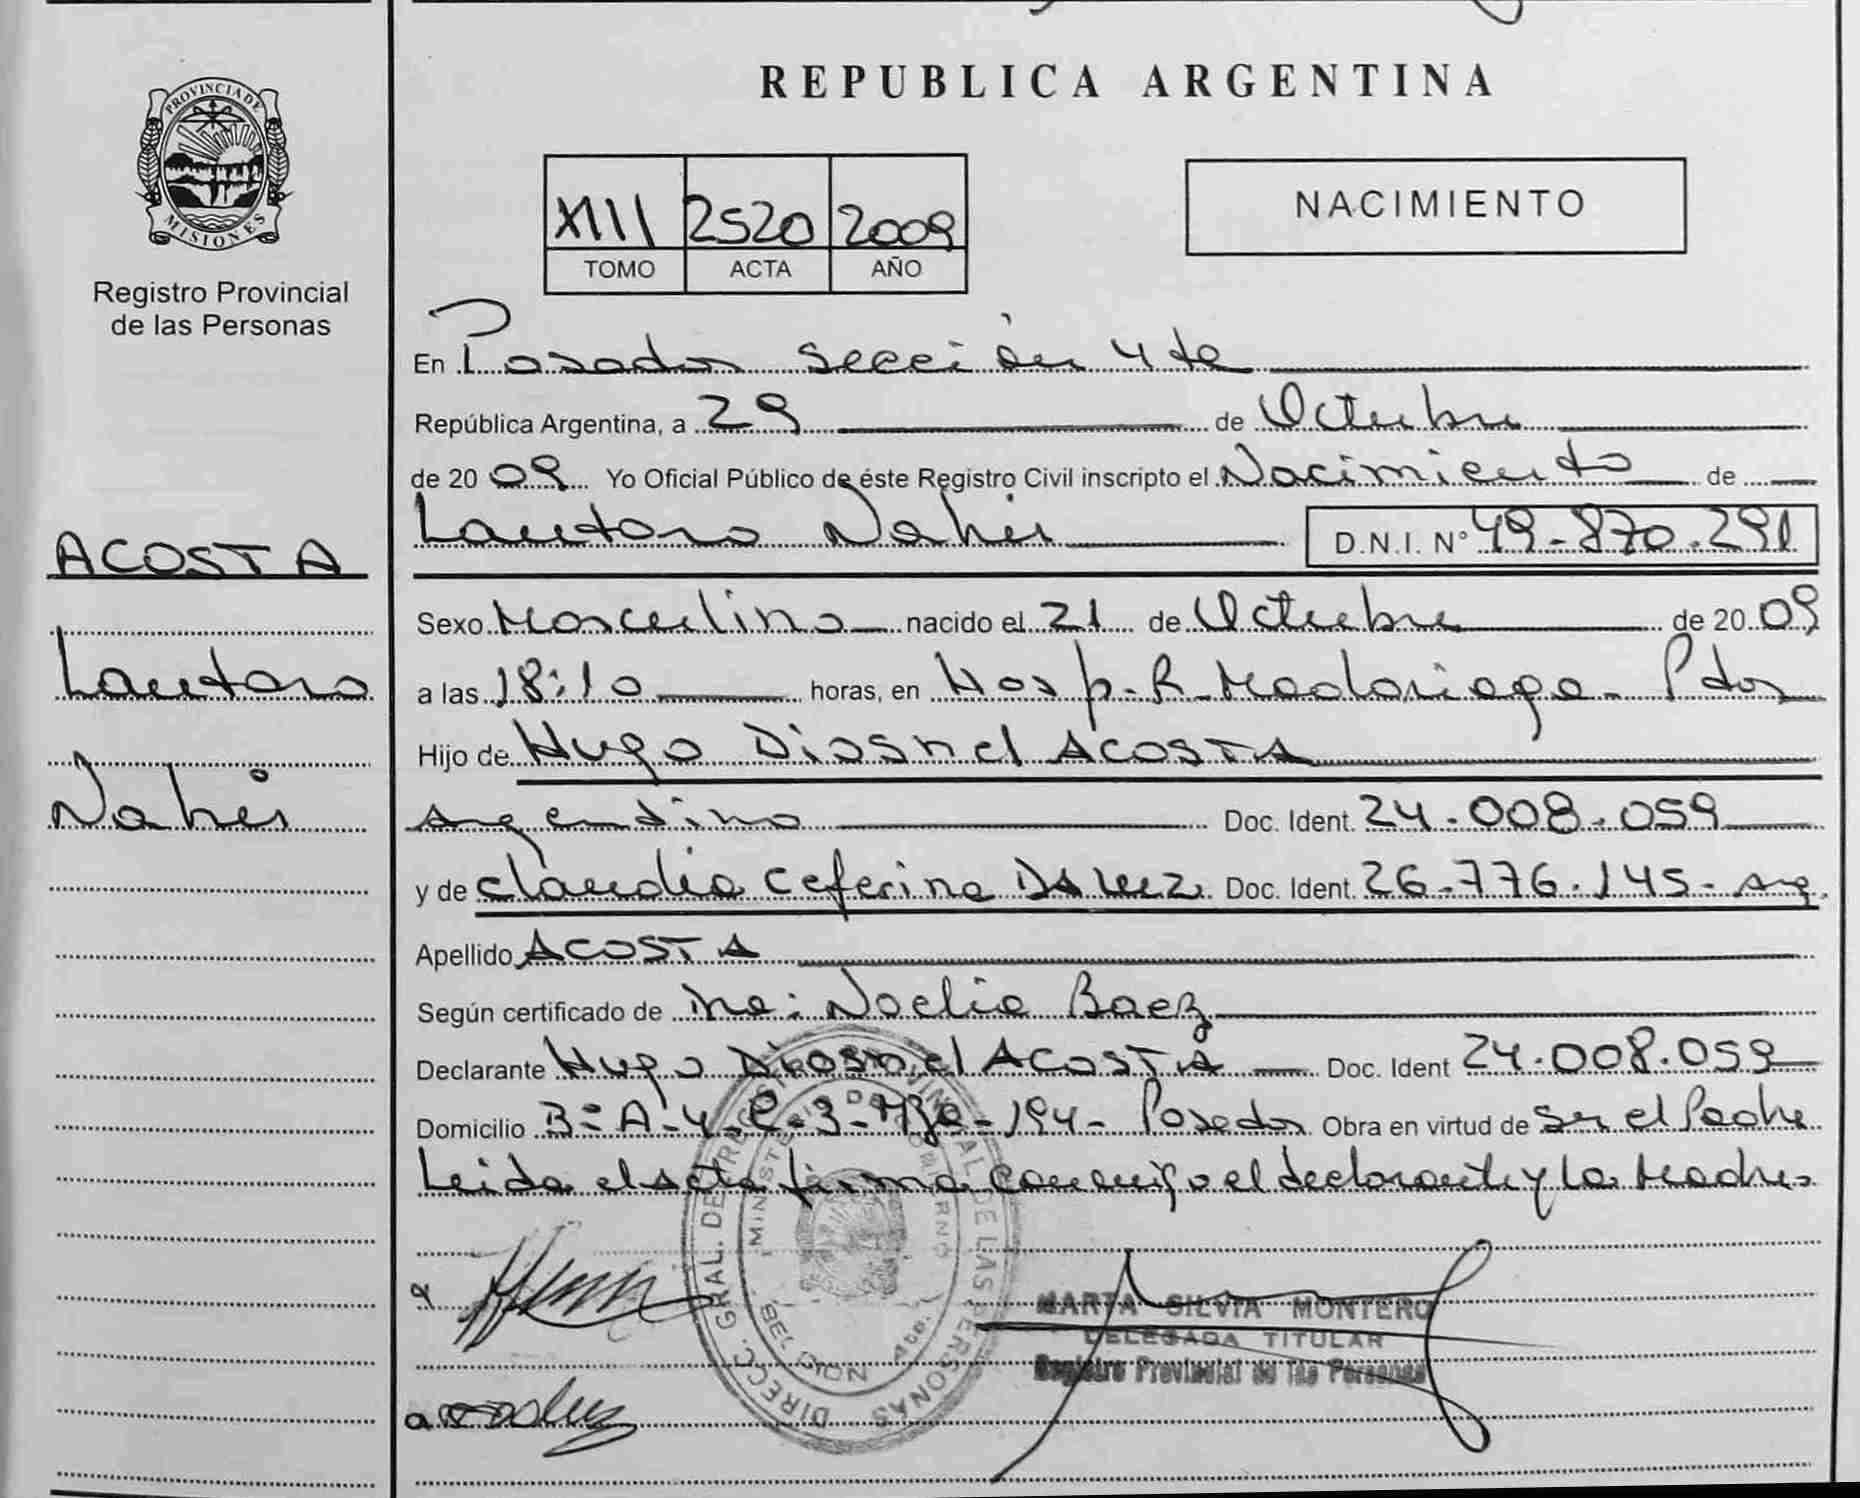 REPUBLICA ARGENTINA
PROVINCIA DE
MISIONES
Registro Provincial
de las Personas
XIII 2520 2009
TOMO ACTA AÑO
NACIMIENTO
En Posadas Sección 4ta
República Argentina, a 29 de Octubre
de 2009 Yo Oficial Público de éste Registro Civil inscripto el Nacimiento de
Lautaro Nahir D.N.I. N° 49-870.291
ACOSTA
Lautaro
Nahir
Sexo Masculino nacido el 21 de Octubre de 2009
a las 18:10 horas, en Hosp. R. Madariaga - Pdas
Hijo de Hugo Diosnel ACOSTA
Argentino Doc. Ident. 24.008.059
y de Claudia Ceferina Da Luz Doc. Ident. 26.776.145 - arg.
Apellido ACOSTA
Según certificado de Noelia Baez
Declarante Hugo Diosnel ACOSTA Doc. Ident 24.008.059
Domicilio B= A-4-C-3-Mza-194- Posadas Obra en virtud de Ser el Padre
Leida el acta firma conmigo el declarante y la Madre
DIRECC. GRAL. DEL REG. PROVINCIAL DE LAS PERSONAS
MINISTERIO DE GOBIERNO
MARTA SILVIA MONTERO
DELEGADA TITULAR
Registro Provincial de las Personas